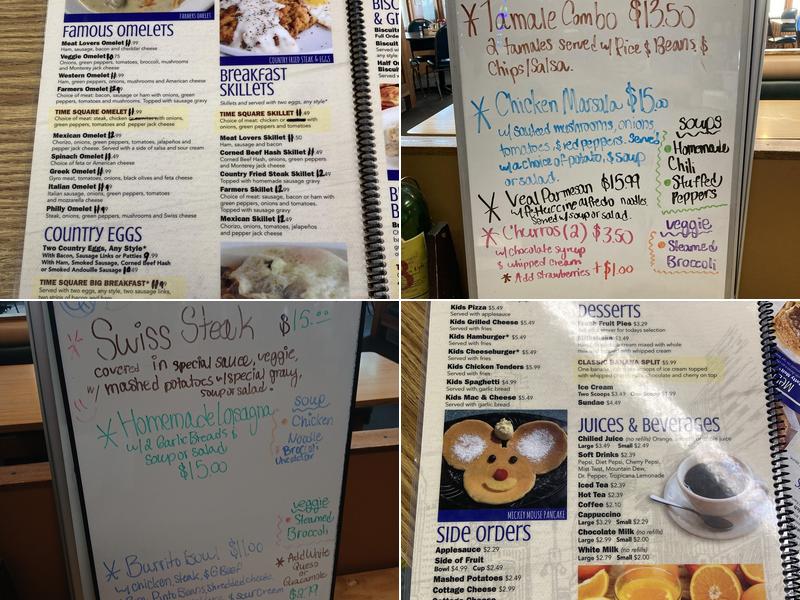 FARMERS OMELET
FAMOUS OMELETS
Meat Lovers Omelet 11.99
Ham, sausage, bacon and cheddar cheese
Veggie Omelet
Onions, green peppers, tomatoes, broccoli, mushrooms
and Monterey jack cheese
Western Omelet 11.99
Ham, green peppers, onions, mushrooms and American cheese
Farmers Omelet
Choice of meat: bacon, sausage or ham with onions, green
peppers, mushrooms and tomatoes. Topped with sausage gravy
TIME SQUARE OMELET 11.99
Choice of meat: steak, chicken with onions,
green peppers, tomatoes and pepper jack cheese
Mexican Omelet 12.99
Chorizo, onions, green peppers, tomatoes, jalapeños and
pepper jack cheese. Served with a side of salsa and sour cream
Spinach Omelet 11.49
Choice of feta or American cheese
Greek Omelet 11.99
Gyro meat, tomato, onions, black olives and feta cheese
Italian Omelet
Italian sausage, onions, green peppers, tomatoes
and mozzarella cheese
Philly Omelet
Steak, onions, green peppers, mushrooms and Swiss cheese
COUNTRY EGGS
Two Country Eggs, Any Style*
With Bacon, Sausage Links or Patties 9.99
With Ham, Smoked Sausage, Corned Beef Hash
or Smoked Andouille Sausage 10.49
TIME SQUARE BIG BREAKFAST*
Served with two eggs, any style, two sausage links,
two strips of bacon and ham
COUNTRY FRIED STEAK & EGGS
BREAKFAST
SKILLETS
Skillets served with two eggs, any style*
TIME SQUARE SKILLET 11.49
Choice of meat: chicken or with
onions, green peppers and tomatoes
Meat Lovers Skillet 11.50
Ham, sausage and bacon
Corned Beef Hash Skillet 11.49
Corned Beef Hash, onions, green peppers
and Monterey jack cheese
Country Fried Steak Skillet 12.49
Topped with homemade sausage gravy
Farmers Skillet 12.99
Choice of meat: sausage, bacon or ham with
green peppers, onions and tomatoes.
Topped with sausage gravy
Mexican Skillet 12.49
Chorizo, onions, green peppers, tomatoes, jalapeños
and pepper jack cheese
& GR
Biscuits
Full Order
Biscuit
Half Or
Tamale Combo $13.50
2 tamales served w/ Rice & Beans &
Chips/Salsa.
Chicken Marsala $15.00
w/ sauteed mushrooms, onions
tomatoes, & red peppers. Served
w/ a choice of potato, & soup
or salad.
Veal Parmesan $15.99
w/ fettuccine alfredo noodles.
Served w/ soup or salad.
Churros (2) $3.50
w/ chocolate syrup
& whipped cream
Add strawberries +$1.00
soups
Homemade
Chili
Stuffed
Peppers
veggie
Steamed
Broccoli
Swiss Steak $15.00
covered in special sauce, veggie,
w/ mashed potatoes w/ special gravy,
soup or salad.
Homemade Lasagna
w/ 2 Garlic Breads &
soup or salad
$15.00
soup
Chicken
Noodle
Broccoli
Cheddar
veggie
Steamed
Broccoli
Burrito Bowl $11.00
w/ chicken, Steak, & G Beef
Rice, Pinto Beans, Shredded cheese
Sour Cream
Add White
Queso
or
Guacamole
Kids Pizza $5.49
Served with applesauce
Kids Grilled Cheese $5.49
Served with fries
Kids Hamburger* $5.49
Served with fries
Kids Cheeseburger* $5.49
Served with fries
Kids Chicken Tenders $5.99
Served with fries
Kids Spaghetti $4.99
Served with garlic bread
Kids Mac & Cheese $5.49
Served with garlic bread
MICKEY MOUSE PANCAKE
SIDE ORDERS
Applesauce $2.29
Side of Fruit
Bowl $4.99 Cup $2.49
Mashed Potatoes $2.49
Cottage Cheese $2.99
DESSERTS
Fresh Fruit Pies $3.29
Ask your server for todays selection
Milkshake $3.49
cream mixed with whole
topped with whipped cream
CLASSIC BANANA SPLIT $5.99
One banana, scoops of ice cream topped
with whipped chocolate and cherry on top
Ice Cream
Two Scoops $3.49 One Scoop $1.99
Sundae $4.49
JUICES & BEVERAGES
Chilled Juice (no refills) Orange, or apple juice
Large $3.49 Small $2.49
Soft Drinks $2.39
Pepsi, Diet Pepsi, Cherry Pepsi,
Mist Twist, Mountain Dew,
Dr. Pepper, Tropicana Lemonade
Iced Tea $2.39
Hot Tea $2.39
Coffee $2.10
Cappuccino
Large $3.29 Small $2.29
Chocolate Milk (no refills)
Large $2.99 Small $2.00
White Milk (no refills)
Large $2.79 Small $2.00